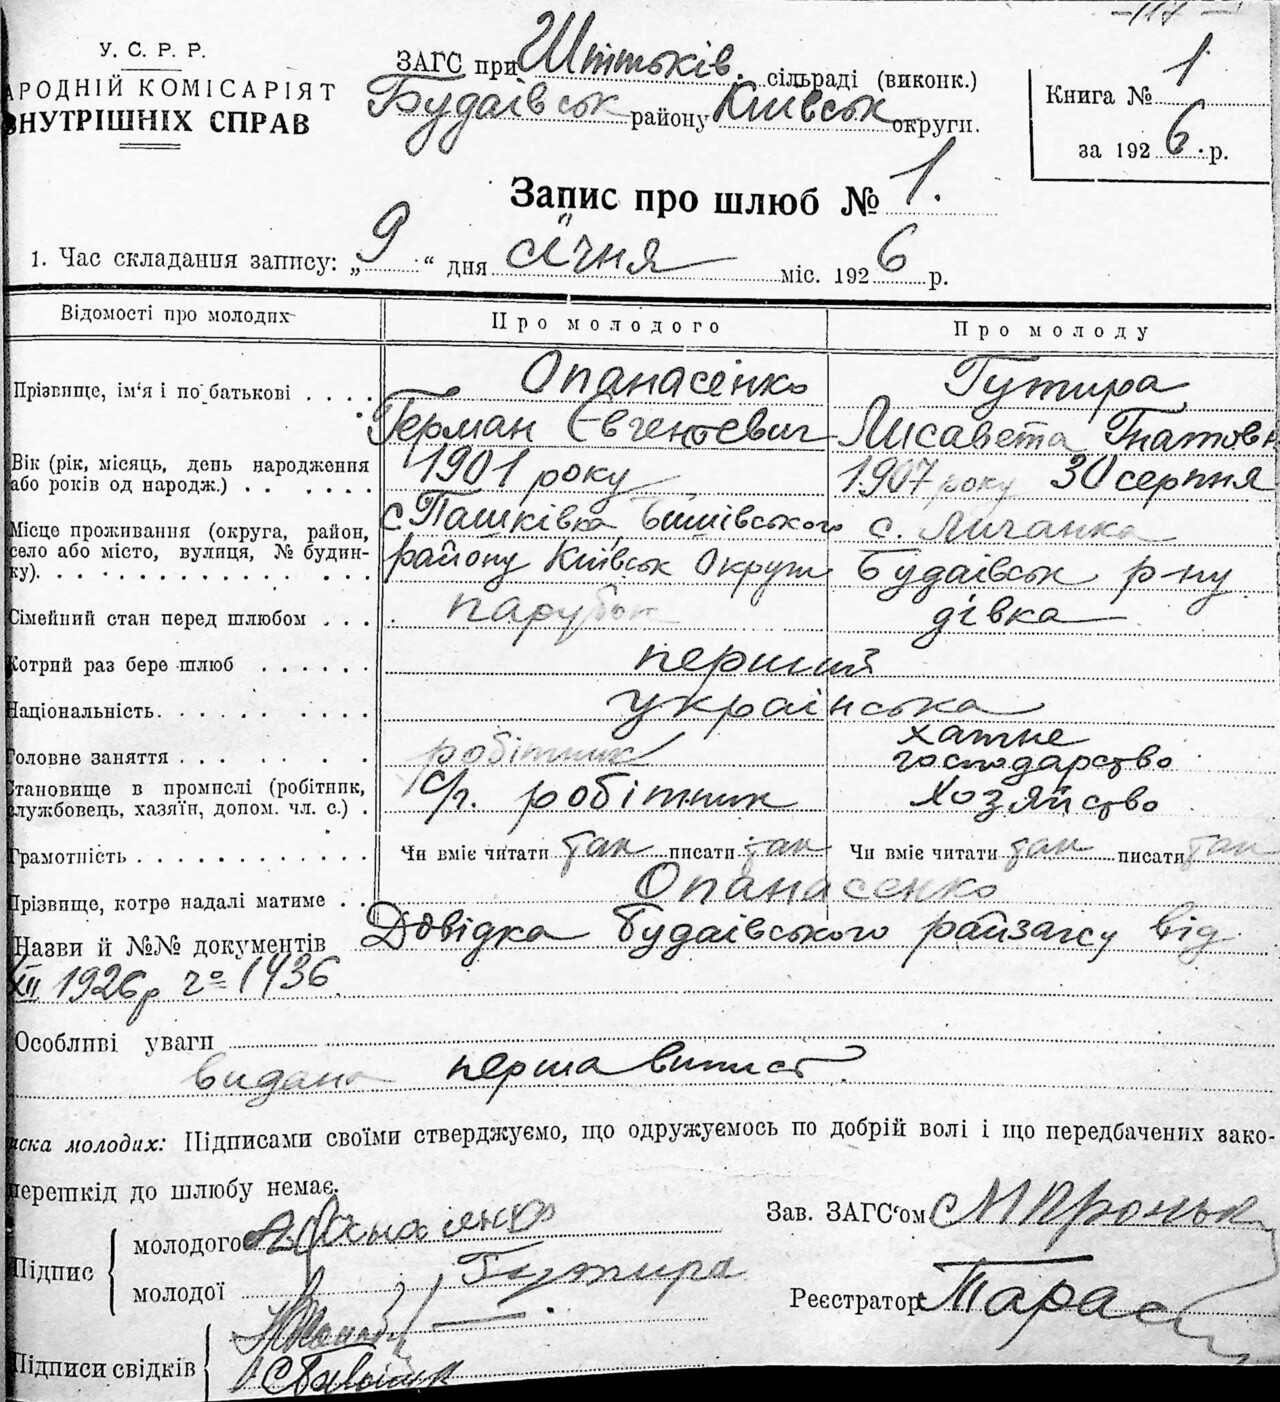 - 117 -
У. С. Р. Р.
АРОДНІЙ КОМІСАРІЯТ
ВНУТРІШНІХ СПРАВ
ЗАГС при Шпитьків. сільраді (виконк.)
Будаівськ району Київськ округи.
Книга № 1
за 1926 р.
Запис про шлюб № 1.
1. Час складання запису: „ 9 “ дня січня міс. 1926 р.
Відомості про молодих
Про молодого
Про молоду
Прізвище, ім'я і по батькові . . . .
Опанасенко
Гутира
Герман Євгеньевич
Лисавета Гнатовн
Вік (рік, місяць, день народження
або років од народж.) . . . . . . .
1901 року
1907 року 30 серпня
Місце проживання (округа, район,
село або місто, вулиця, № будин-
ку). . . . . . . . . . . . . . . .
с. Пашківка, Бишівського
району Київськ Округи
с. Личанка
Будаівськ р-ну
Сімейний стан перед шлюбом . . .
парубок
дівка
Котрий раз бере шлюб . . . . . .
перший
Національність. . . . . . . . . .
українська
Головне заняття . . . . . . . . .
робітник
хатне
господарство
Становище в промислі (робітник,
службовець, хазяїн, допом. чл. с.) .
с/г. робітник
хозяйство
Грамотність . . . . . . . . . . . .
Чи вміє читати так писати так
Чи вміє читати так писати так
Прізвище, котре надалі матиме . .
Опанасенко
Назви й №№ документів Довідка Будаівського райзагсу від
XII 1926 р чо 1436
Особливі уваги
видана перша випись
иска молодих: Підписами своїми стверджуємо, що одружуємось по добрій волі і що передбачених зако-
перешкід до шлюбу немає.
Підпис
молодого
молодої Гутира
Підписи свідків
Зав. ЗАГС'ом
Реєстратор Тарас